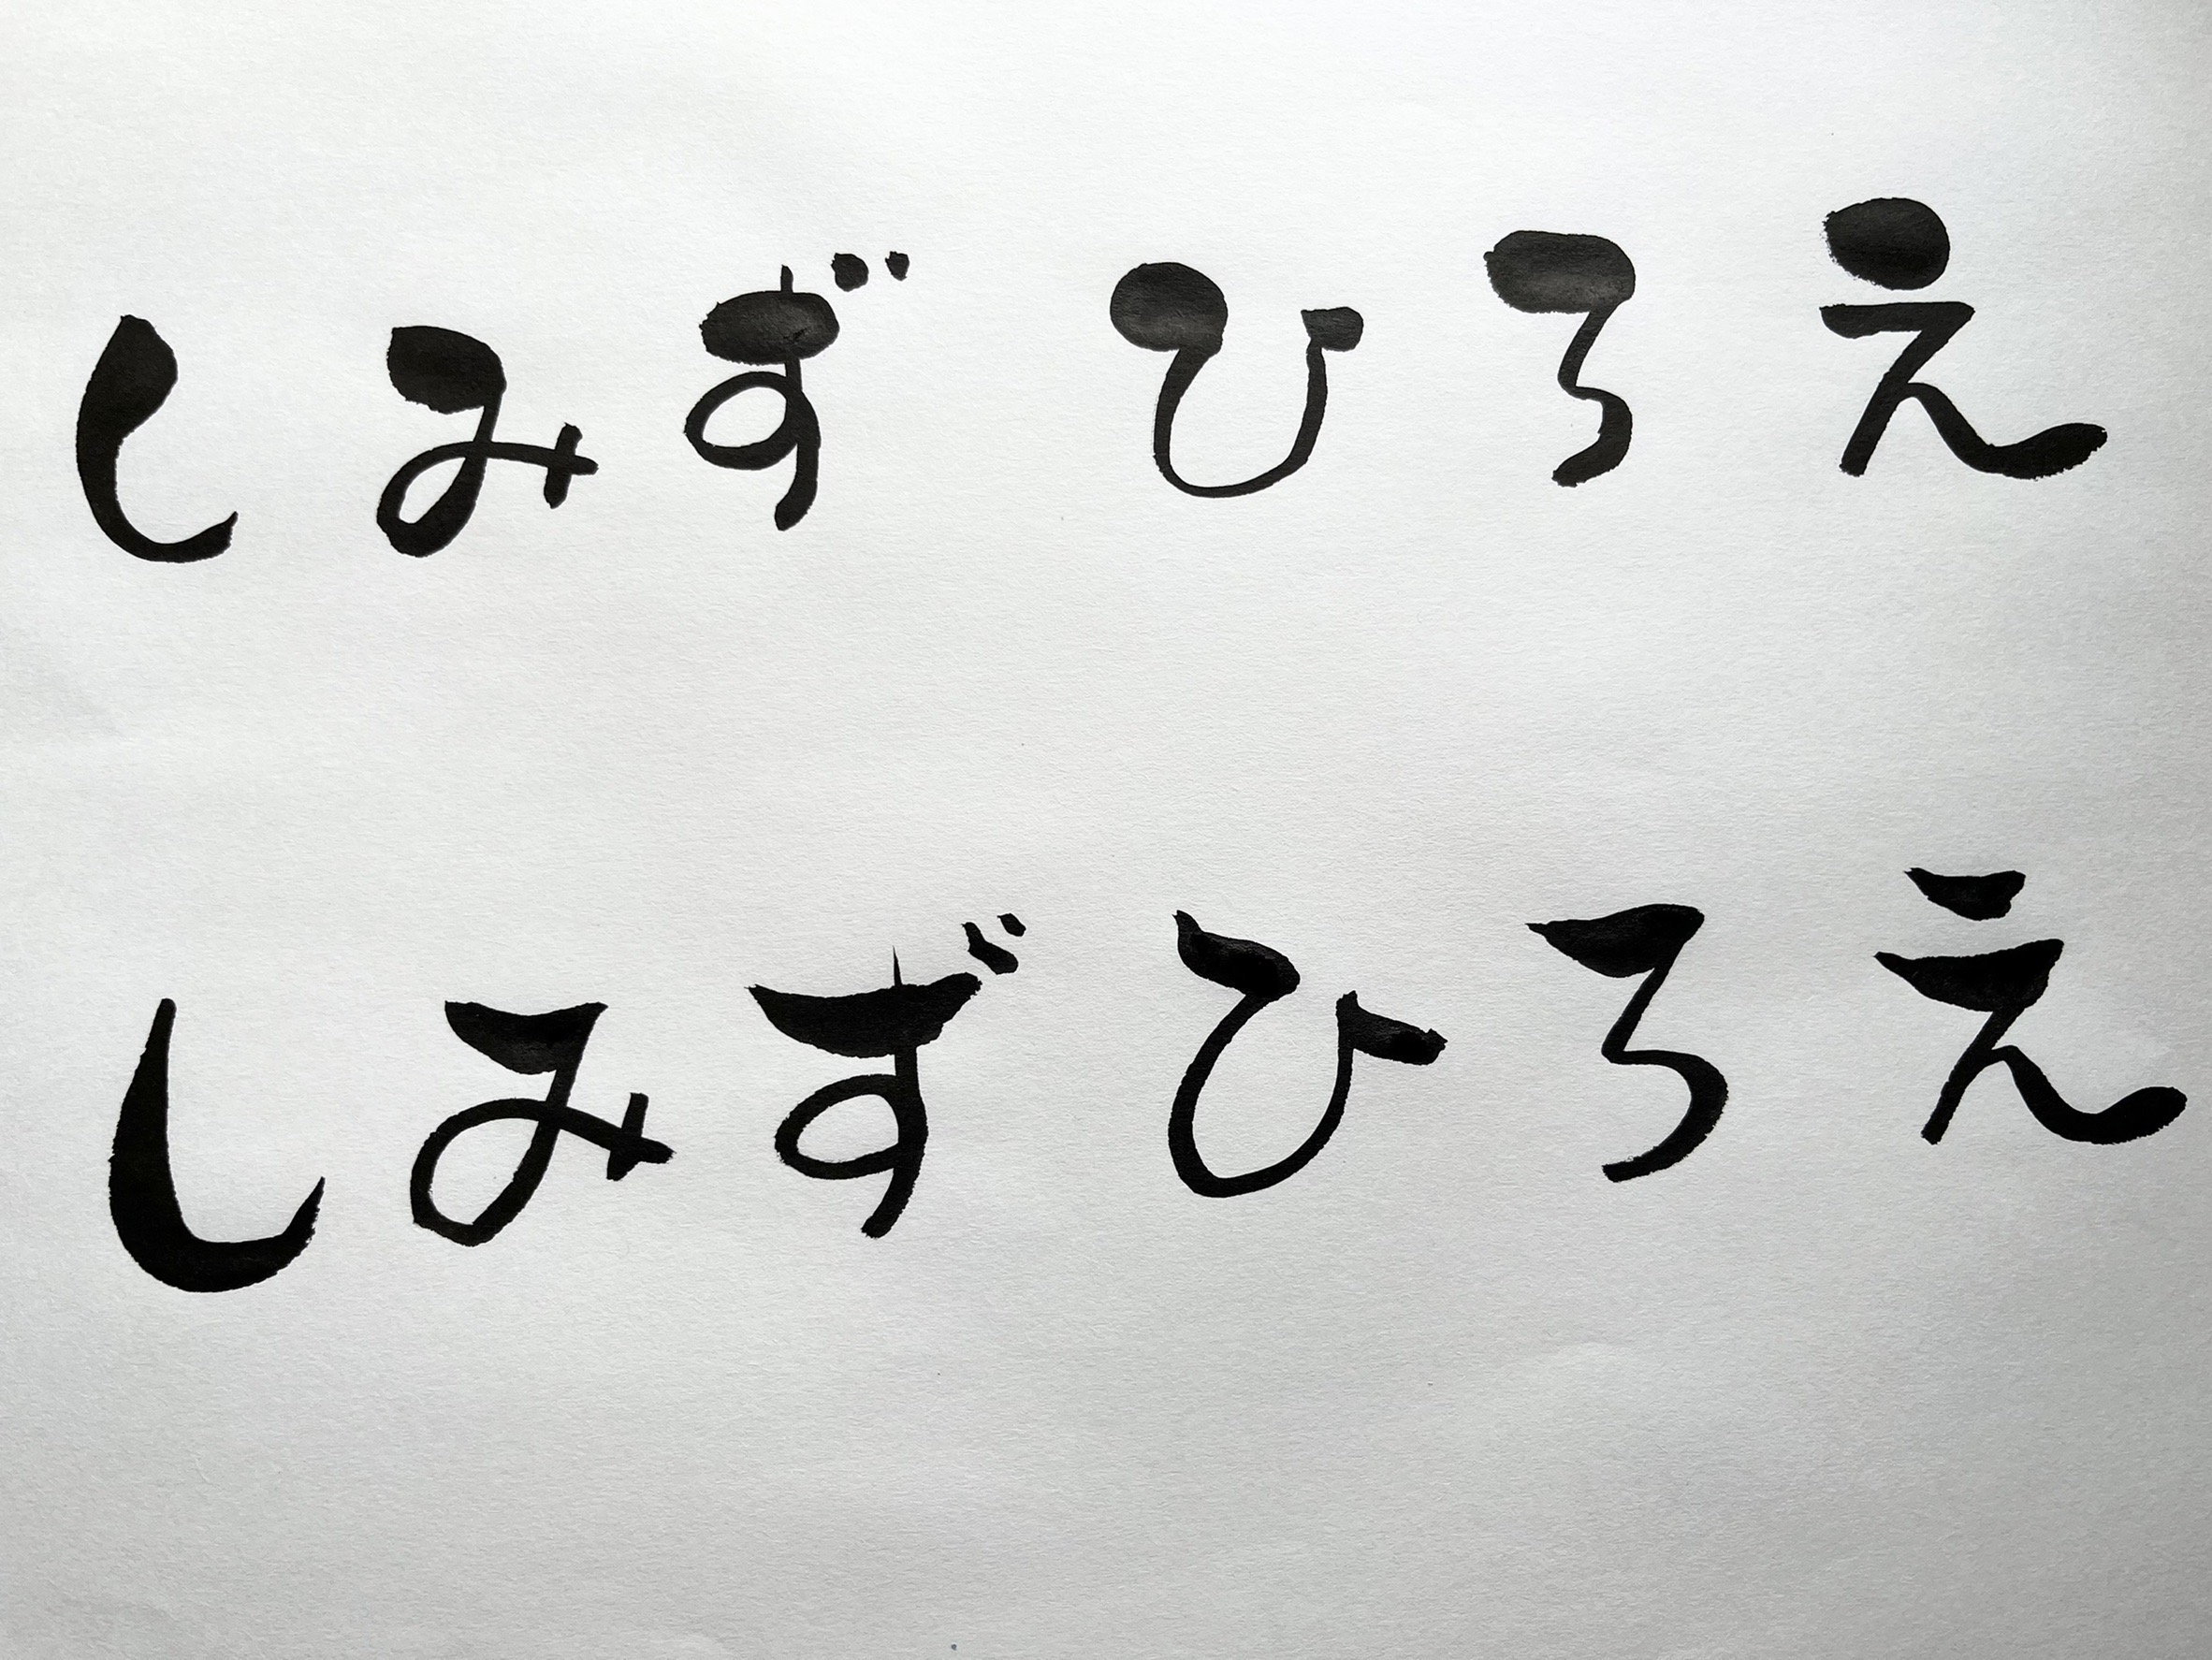 しみず ひろえ
しみず ひろえ